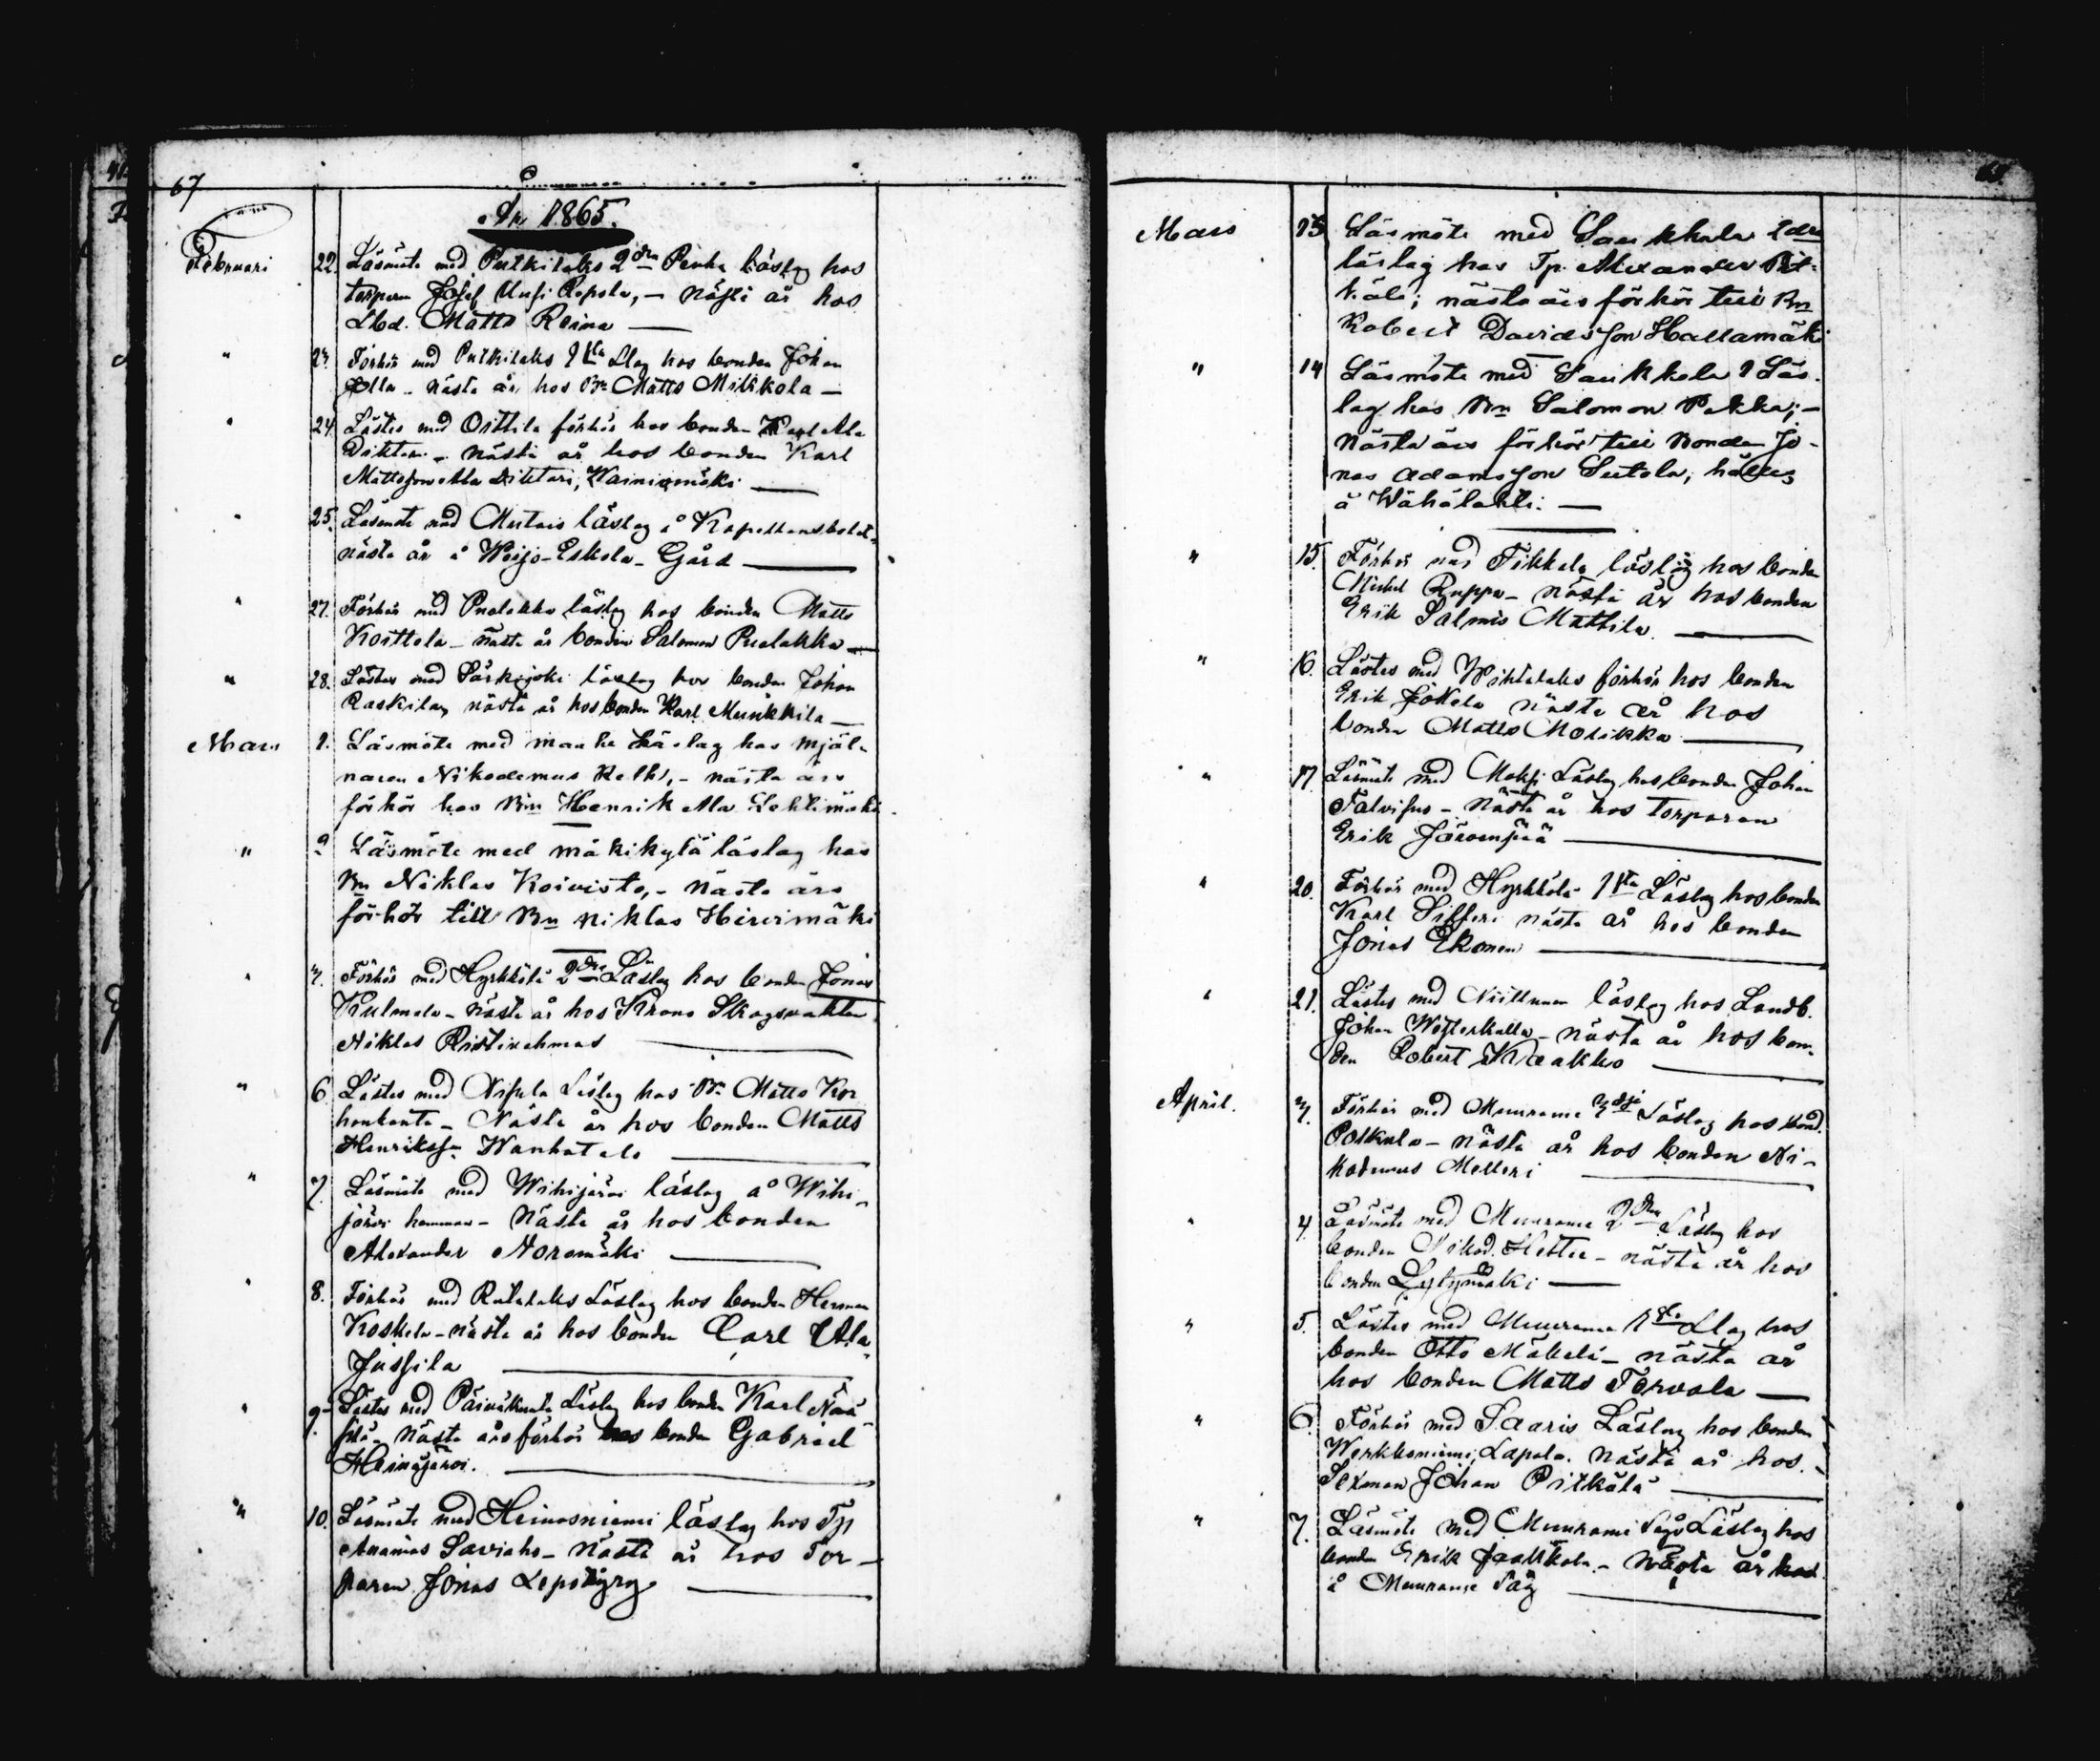 67
År 1865.
Februari 22. Läsmöte med Putkilaks 2dra Penka läslag hos
torparen Josef Uusi Repola, — nästa år hos
Lbd. Matts Reina —
" 23. Förhör med Putkilaks 1sta Llag hos bonden Johan
Ella - nästa år hos Bn Matts Mikkola —
" 24. Lästes med Osttila förhör hos bonden Karl Ala
Diktari - nästa år hos bonden Karl
Mattsson Ala Diktari, Wainionmäki —
" 25. Läsmöte med Mutais läslag å Kapellansbolet
nästa år å Weijo-Eskola Gård —
" 27. Förhör med Puolakka läslag hos bonden Matts
Koittola - nästa år bonden Salomon Puolakka —
" 28. Lästes med Särkijoki läslag hos bonden Johan
Raskila, nästa år hos bonden Karl Munkkila —
Mars 1. Läsmöte med Maahe Läslag hos mjöl-
naren Nikodemus Kelhi, - nästa års
förhör hos Bn Henrik Ala Lehtimäki.
" 2 Läsmöte med Mäkikylä läslag hos
Bn Niklas Koivisto, - nästa års
förhör till Bn Niklas Hirvimäki
" 3. Förhör med Hyrkkölä 2dra Läslag hos bonden Jonas
Kulmala - nästa år hos Krono Skogsvakten
Niklas Ristivahmas —
" 6 Lästes med Nisula Läslag hos Bn Matts Kor
honkanta - Nästa år hos bonden Matts
Henriksson Wanhatalo —
" 7. Läsmöte med Wihijärvi läslag å Wihi-
järvi hemman - Nästa år hos bonden
Alexander Noromäki —
" 8. Förhör med Rutalaks Läslag hos bonden Herman
Koskela - nästa år hos bonden Carl Ala
Jussila —
" 9. Lästes med Päiväkunta Läslag hos bonden Karl
nästa års förhör hos bonden Gabriel
Heinäjärvi. —
" 10. Läsmöte med Heinosniemi läslag hos Tp
Ananias Saviaho - nästa år hos Tor-
paren Jonas Lepokyrö —
Mars 13 Läsmöte med Saukkola 2dra
läslag hos Tp. Alexander Pit-
kälä; nästa års förhör till Bn
Robert Davidsson Hallamäki
" 14 Läsmöte med Saukkola 1 Läs-
lag hos Bn Salomon Pekka; —
Nästa års förhör till Bonden Jo-
nas Adamsson Sutola; hålles
å Wähälahti. —
" 15. Förhör med Tikkala läslag hos bonden
Michel Ruppa - nästa år hos bonden
Erik Salmis Mattila. —
" 16. Lästes med Wihtalaks förhör hos bonden
Erik Jokela nästa år hos
bonden Matts Morikka —
" 17. Läsmöte med Moksi Läslag hos bonden Johan
Talvisus - nästa år hos Torparen
Erik Järvenpää —
" 20. Förhör med Hyrkkölä 1sta Läslag hos bonden
Karl Sifferi nästa år hos bonden
Jonas Ekonen —
" 21. Lästes med Niittunen läslag hos Landb.
Johan Westerkulla - nästa år hos bon-
den Robert Kraakko —
April. 3. Förhör med Muurame 3dje Läslag hos bond.
Polkula - nästa år hos bonden Ni-
kodemus Melleri —
" 4. Läsmöte med Muurame 2dra Läslag hos
bonden Nikod. Hettee - nästa år hos
bonden Lytymäki —
" 5. Lästes med Muurame 1sta Llag hos
bonden Otto Mäkelä - nästa år
hos bonden Matts Torvala —
" 6. Förhör med Saaris Läslag hos bonden
Werkkoniemi, Lapola. nästa år hos
Sexman Johan Pitkälä —
" 7. Läsmöte med Muurame Sågs Läslag hos
bonden Erik Jaakkola. - nästa år hos
å Muurame Såg —